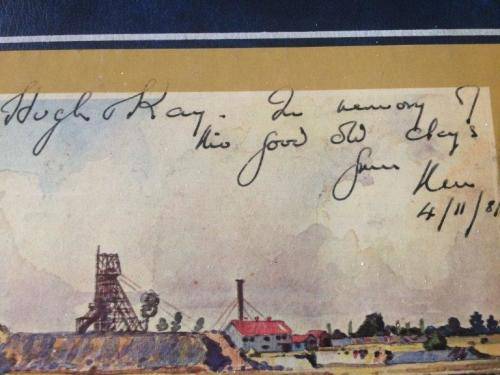 Hugh & Kay. In memory of
the good old days
from Ken
4/11/81